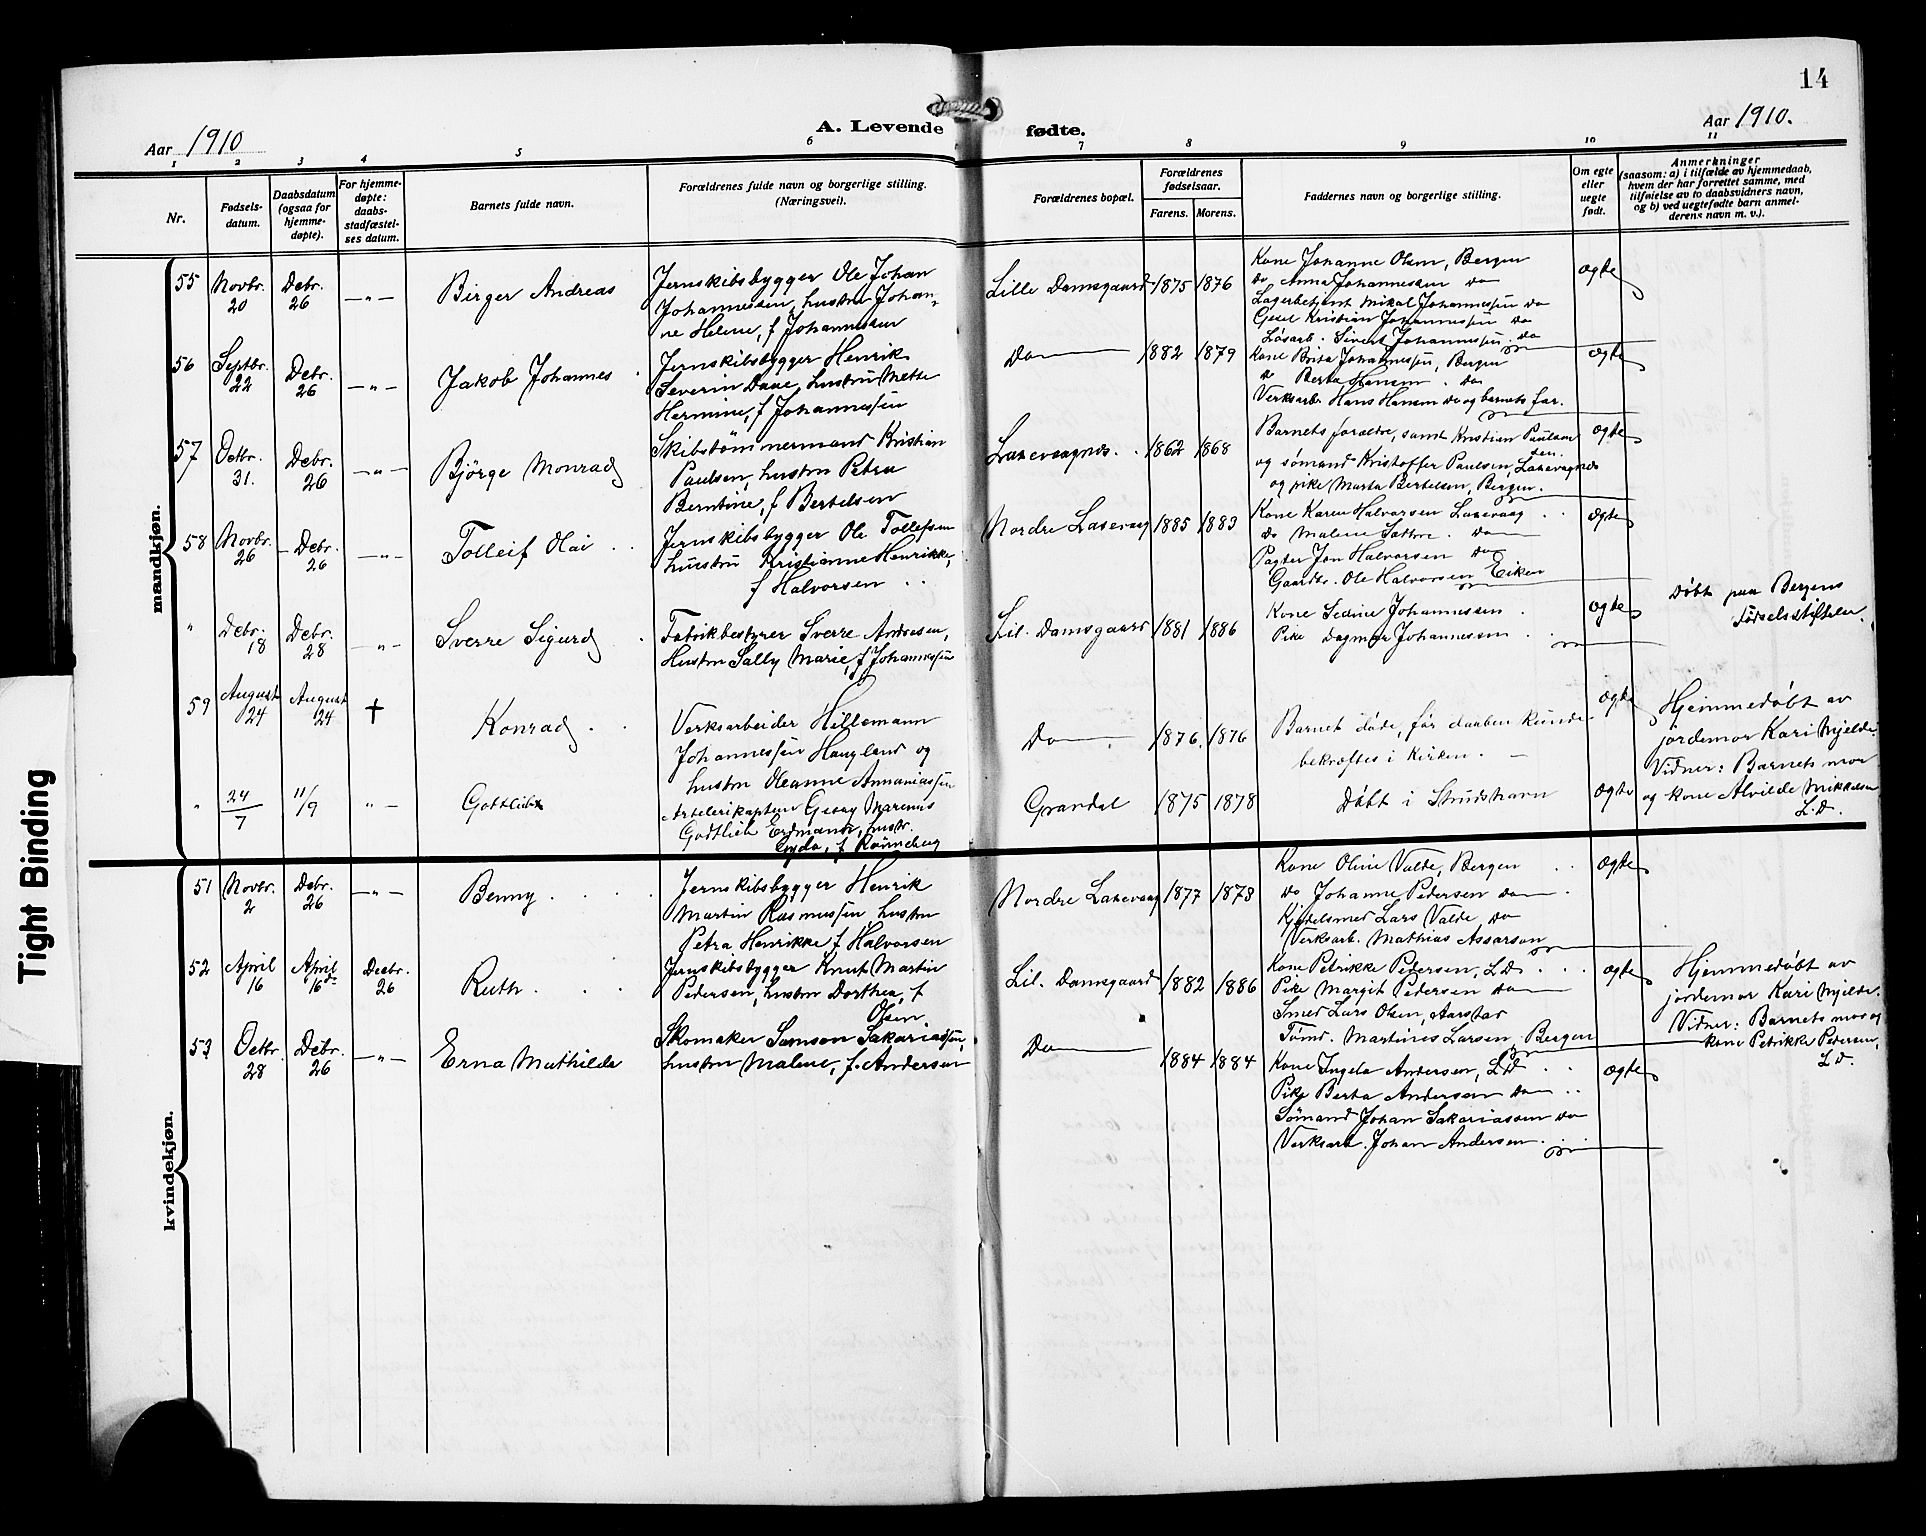 14
Aar 1910
A. Levende fødte.
Aar 1910.
1 2 3 4 5 6 7 8 9 10 11
Nr.
Fødsels-
datum.
Daabsdatum
(ogsaa for
hjemme-
døpte).
For hjemme-
døpte:
daabs-
stadfæstel-
ses datum.
Barnets fulde navn.
Forældrenes fulde navn og borgerlige stilling.
(Næringsvei).
Forældrenes bopæl.
Forældrenes
fødselsaar.
Farens. Morens.
Faddernes navn og borgerlige stilling.
Om egte
eller
uegte
født.
Anmerkninger
(saasom: a) i tilfælde av hjemmedaab,
hvem der har forrettet samme, med
tilføielse av to daabsvidners navn,
og b) ved uegtefødte barn anmel-
derens navn m. v.).
mandkjøn.
55 Novbr. 20 Debr. 26 —"— Birger Andreas
Jernskibsbygger Ole Johan
Johannessen, hustru Johan-
ne Helene, f Johannessen
Lille Damsgaard 1875 1876
Kone Johanne Olsen, Bergen
do Anna Johannessen do
Lagerbetjent Mikal Johannessen do
Gesel Kristian Johannessen do
Løsarb. Sivert Johannessen do
ægte
56 Septbr. 22 Debr. 26 —"— Jakob Johannes
Jernskibsbygger Henrik
Severin Daae, hustru Mette
Hermine, f Johannessen
Do 1882 1879
Kone Brita Johannessen, Bergen
do Berta Hansen do
Verksarb Hans Hansen do og barnets far.
ægte
57 Octbr. 31. Debr. 26 —"— Björge Monrad
Skibstømmermand Kristian
Paulsen, hustru Petra
Berntine, f Bertelsen
Laxevaagnes. 1862 1868
Barnets forældre, samt Kristian Paulsen
og sømand Kristoffer Paulsen, Laxevagnes
og pike Marta Bertelsen, Bergen.
ægte
58 Novbr. 26 Debr. 26 —"— Tolleif Olai
Jernskibsbygger Ole Tollefsen
hustru Kristianne Henrikke,
f Halvorsen
Nordre Laxevaag 1885 1883
Kone Karen Halvorsen Laxevaag
do Malene Sættre. do
Pagter Jon Halvorsen do
Gaardbr. Ole Halvorsen Eiken
ægte
" Debr. 18 Debr. 28 —"— Sverre Sigurd
Fabrikbestyrer Sverre Andresen,
Hustru Sally Marie, f Johannessen
Lil. Damsgaard 1881 1886
Kone Sedine Johannessen
Pike Dagmar Johannessen
ægte
Døbt paa Bergens
Fødselsstiftelse.
59 August 24 August 24 † Konrad
Verksarbeider Hillemann
Johannessen Haugland og
hustru Oleanne Annaniassen
Do 1876. 1876
Barnet døde, før daaben kunde
bekræftes i Kirken.
ægte
Hjemmedøbt av
jordemor Kari Mjelde
Vidner: Barnets mor
og kone Alvilde Mikkelsen
L.D.
" 24/7 11/9 "— Gottlieb
Artelerikaptein Georg Marenus
Godtlieb Erdmann, hustr.
Gyda, f Rönneberg
Gravdal 1875 1878
Døbt i Strudshavn
ægte
kvindekjøn.
51 Novbr. 2 Debr. 26 —"— Benny
Jernskibsbygger Henrik
Martin Rasmussen hustru
Petra Henrikke f Halvorsen
Nordre Laxevaag 1877 1878
Kone Oline Valde, Bergen
do Johanne Pedersen do
Kjedelsmed Lars Valde do
Verksarb. Mathias Assarson
ægte
52 April 16 April 16de Decbr. 26 Ruth
Jernskibsbygger Knut Martin
Pedersen, hustru Dorthea, f
Olsen
Lil. Damsgaard 1882 1886
Kone Petrikke Pedersen, L.D.
Pike Margit Pedersen do
Smed Lars Olsen, Aarstad
Tømd. Martines Larsen, Bergen
ægte
Hjemmedøbt av
jordemor Kari Mjelde.
Vidner: Barnets mor og
kone Petrikke Pedersen,
L.D.
53 Octbr. 28 Debr. 26 —"— Erna Mathilde
Skomaker Samson Sakariassen,
hustru Malene, f. Andersen
Do 1884 1884
Kone Ingela Andersen, L.D.
Pike Berta Andersen do
Sömand Johan Sakariassen do
Verksarb. Johan Andersen.
ægte
Tight Binding